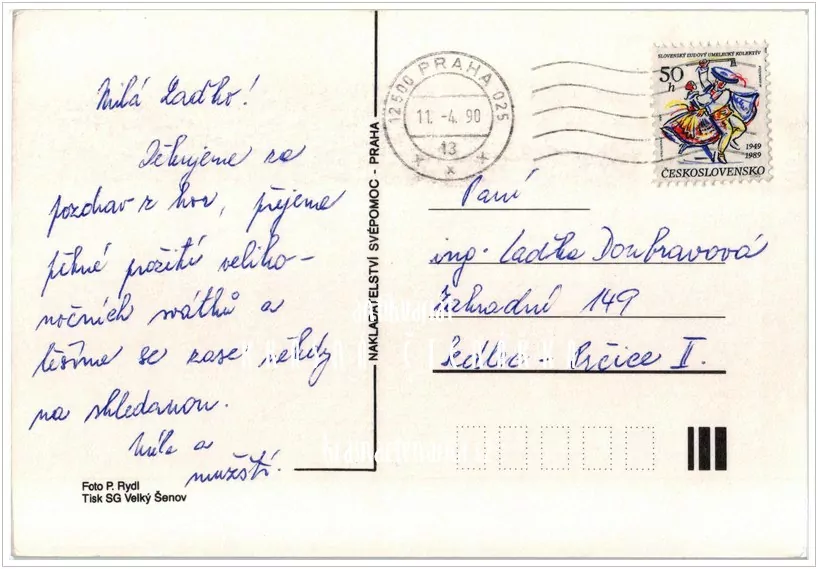 Milá Laďko!
Děkujeme za
pozdrav z hor, přejeme
pěkné prožití veliko-
nočních svátků a
těšíme se zase někdy
na shledanou.
Míla a
mužští.
Foto P. Rydl
Tisk SG Velký Šenov
NAKLADATELSTVÍ SVÉPOMOC - PRAHA
12500 PRAHA 025
11. -4. 90
13
SLOVENSKÝ ĽUDOVÝ UMELECKÝ KOLEKTÍV
50
h
1949
1989
ČESKOSLOVENSKO
Paní
ing. Laďka Doubravová
Zahradní 149
Sedlec - Prčice II.